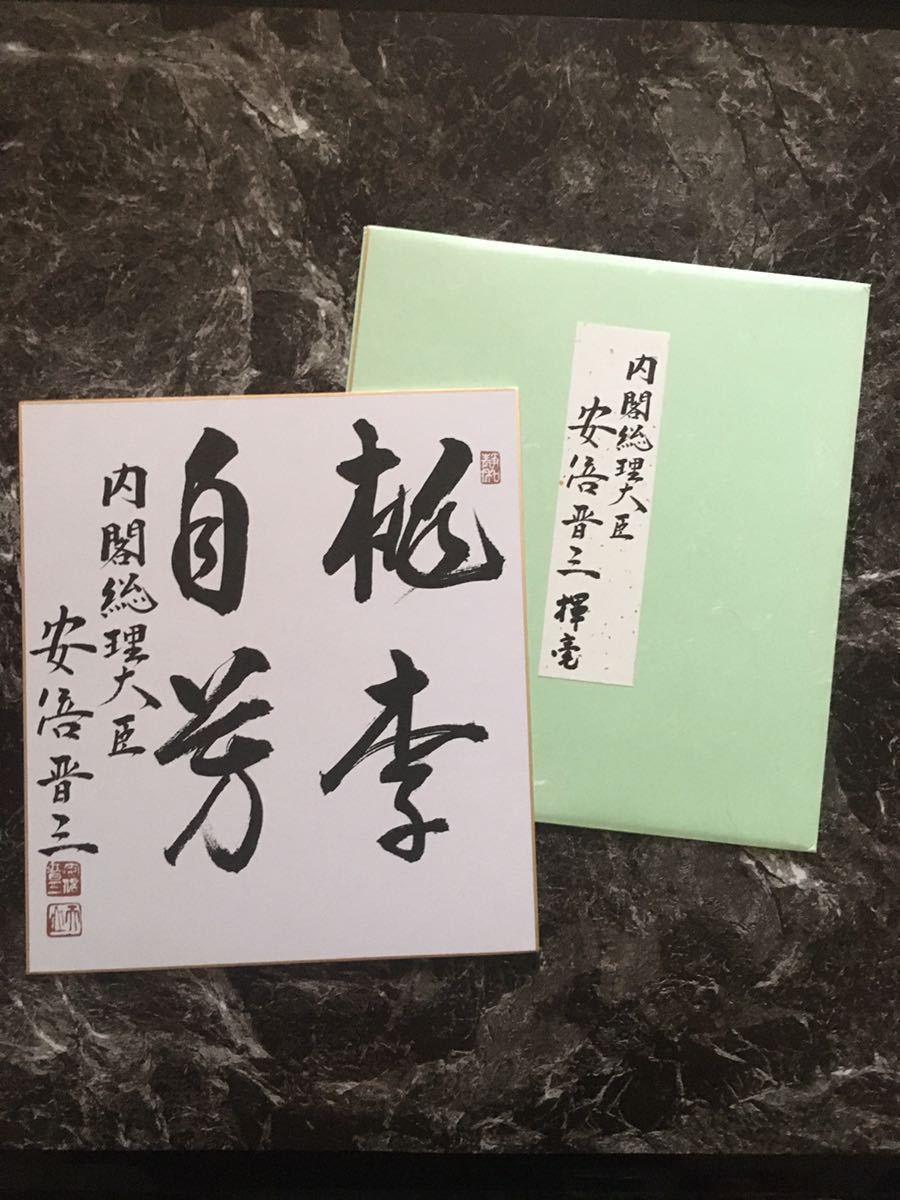 桃李
自芳
内閣総理大臣
安倍晋三
内閣総理大臣
安倍晋三揮毫